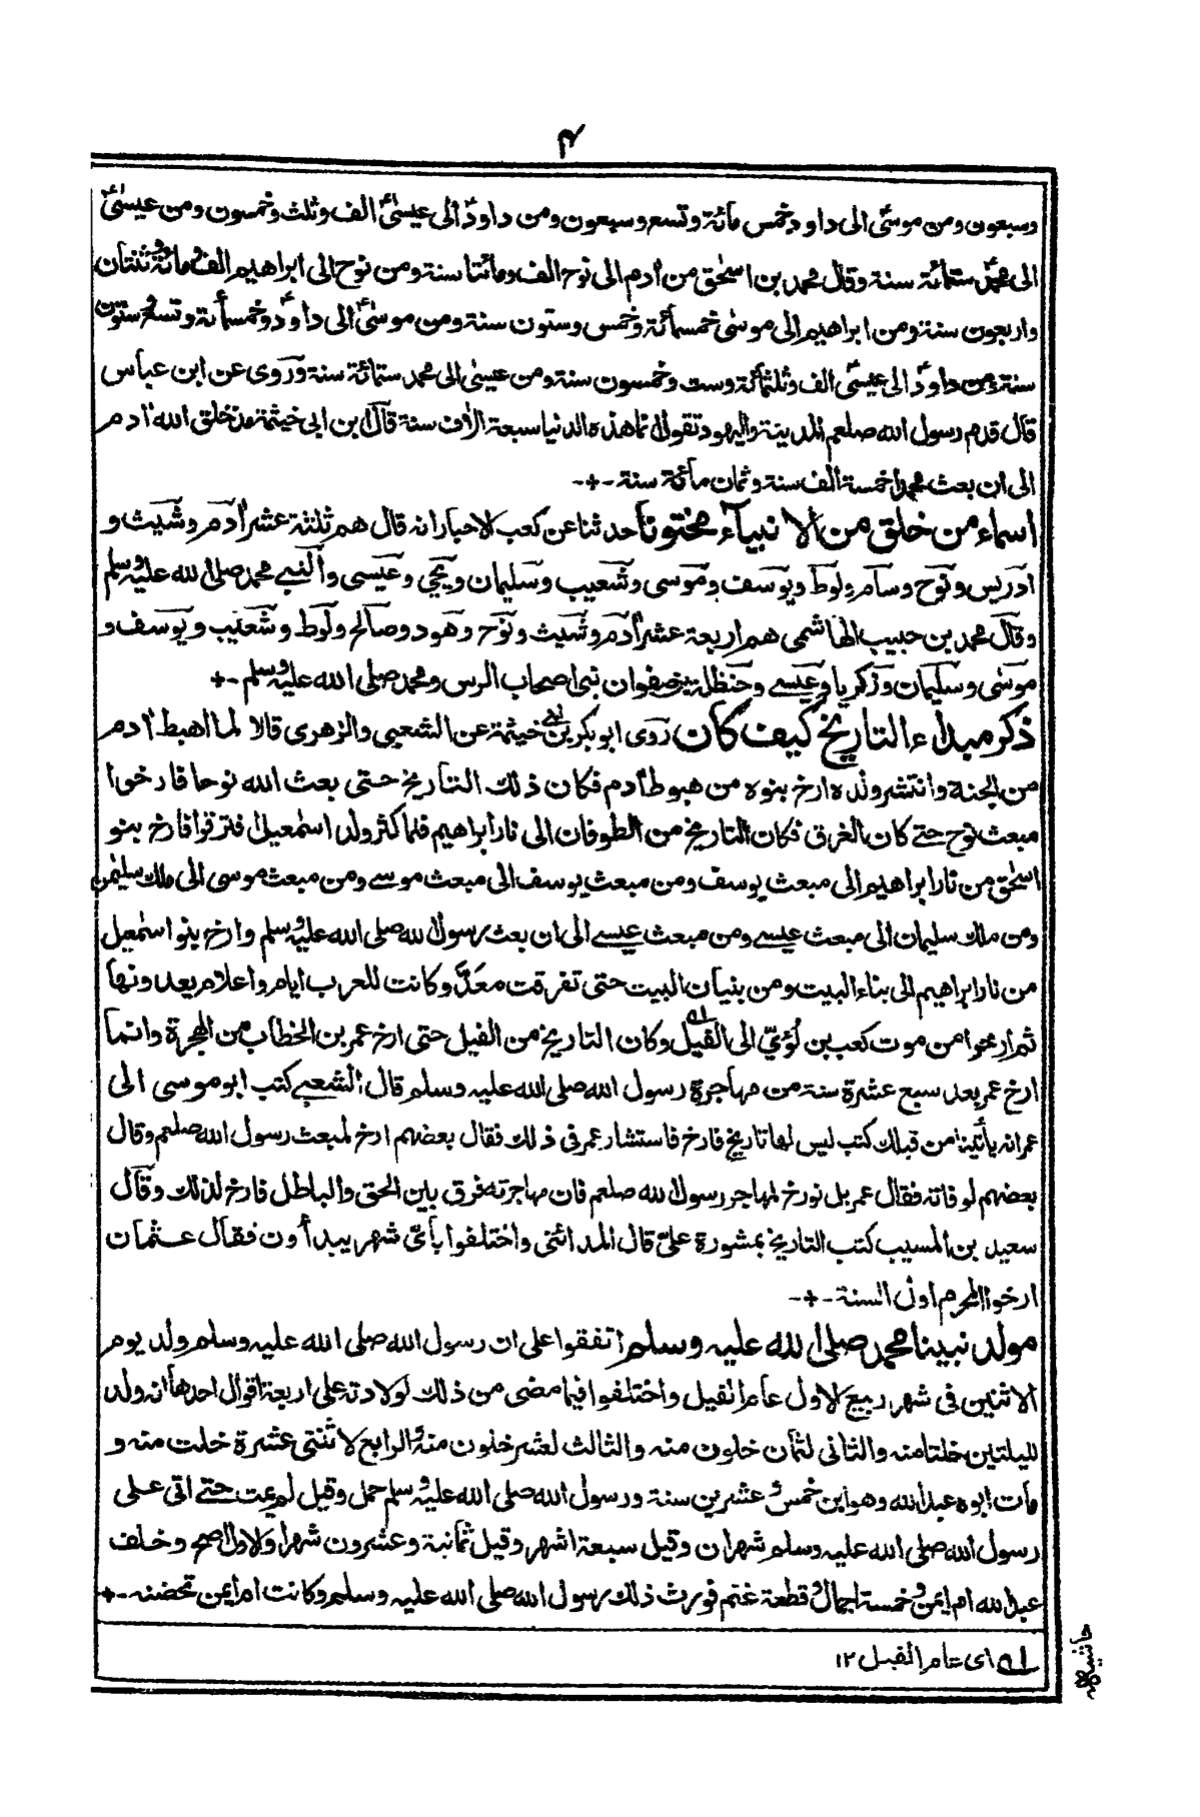 ٤
وسبعون ومن موسىٰ الى داود خمس مائة وتسع وسبعون ومن داودؑ الى عيسىٰؑ الف وثلث وخمسون ومن عيسىٰؑ
الى محمدؐ ستمائة سنة وقال محمد بن اسحٰق من اٰدم الى نوح الف ومائتا سنة ومن نوح الى ابراهيم الف ومائة وثنتان
واربعون سنة ومن ابراهيم الى موسىٰ خمسمائة وخمس وستون سنة ومن موسىٰؑ الى داودؑ وخمسمائة وتسع وستون
سنة ومن داودؑ الى عيسىؑ الف وثلثمائة وست وخمسون سنة ومن عيسىٰ الى محمد ستمائة سنة وروى عن ابن عباس
قال قدم رسول الله صلعم المدينة واليهود تقول انما هذه الدنيا سبعة اٰلاف سنة قال ابن ابى خيثمة منذ خلق الله اٰدم
الى ان بعث محمدا خمسة الف سنة وثمان مائة سنة -+-
اسماء من خلق من الانبياء مختونا حدثنا عن كعب الاحبار انه قال هم ثلثة عشر اٰدم وشيث و
ادريس ونوح وسام ولوط ويوسف وموسى وشعيب وسليمان ويحيى وعيسى والنبے محمد صلى الله عليه وسلم
وقال محمد بن حبيب الهاشمى هم اربعة عشر اٰدم وشيث ونوح وهود وصالح ولوط وشعيب ويوسف و
موسى وسليمان وزكريا وعيسے وحنظلة بن صفوان نبى اصحاب الرس ومحمد صلى الله عليه وسلم -+
ذكر مبداء التاريخ كيف كان روى ابو بكر بن ابے خيثمة عن الشعبى والزهرى قالا لما اهبط اٰدم
من الجنة وانتشر ولده ارخ بنوه من هبوط اٰدم فكان ذلك التاريخ حتى بعث الله نوحا فارخوا
مبعث نوح حتے كان الغرق فكان التاريخ من الطوفان الى نار ابراهيم فلما كثر ولد اسمٰعيل افترقوا فارخ بنو
اسحٰق من نار ابراهيم الى مبعث يوسف ومن مبعث يوسف الى مبعث موسے ومن مبعث موسى الى ملك سليمٰن
ومن ملك سليمان الى مبعث عيسے ومن مبعث عيسے الى ان بعث رسول الله صلى الله عليه وسلم وارخ بنو اسمٰعيل
من نار ابراهيم الى بناء البيت ومن بنيان البيت حتى تفرقت معدّ وكانت للعرب ايام واعلام يعدونها
ثم ارخوا من موت كعب بن لؤيّ الى الفيل؁ وكان التاريخ من الفيل حتى ارخ عمر بن الخطاب من الهجرة وانما
ارخ عمر بعد سبع عشرة سنة من مهاجرة رسول الله صلى الله عليه وسلم قال الشعبے كتب ابو موسى الى
عمر انه يأتينا من قبلك كتب ليس لها تاريخ فارخ فاستشار عمر فى ذلك فقال بعضهم ارخ لمبعث رسول الله صلعم وقال
بعضهم لوفاته فقال عمر بل نورخ لمهاجر رسول الله صلعم فان مهاجرته فرق بين الحق والباطل فارخ لذلك وقال
سعيد بن المسيب كتب التاريخ بمشورة علىّ قال المدائنى واختلفوا بأىّ شهر يبدأون فقال عثمان
ارخوا المحرم اول السنة -+-
مولد نبينا محمد صلى الله عليه وسلم اتفقوا على ان رسول الله صلى الله عليه وسلم ولد يوم
الاثنين فى شهر ربيع الاول عام الفيل واختلفوا فيما مضى من ذلك لولادته على اربعة اقوال احدها انه ولد
لليلتين خلتا منه والثانى لثمان خلون منه والثالث لعشر خلون منه والرابع لاثنتى عشرة خلت منه و
مات ابوه عبد الله وهو ابن خمس وعشرين سنة ورسول الله صلى الله عليه وسلم حمل وقيل لم يمت حتے اتى على
رسول الله صلى الله عليه وسلم شهران وقيل سبعة اشهر وقيل ثمانية وعشرون شهرا والاول الصح وخلف
عبد الله ام ايمن وخمسة اجمال وقطعة غنم فورث ذلك رسول الله صلى الله عليه وسلم وكانت ام ايمن تحضنه -+
ل؎ اى عام الفيل ١٢
حاشيه